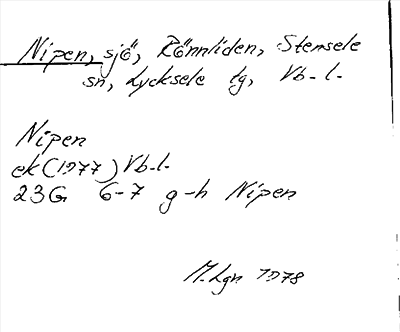 Nipen, sjö, Rönnliden, Stensele
sn, Lycksele tg, Vb-l.
Nipen
ek (1977) Vb-l.
23G 6-7 g-h Nipen
M.Lgn 1978